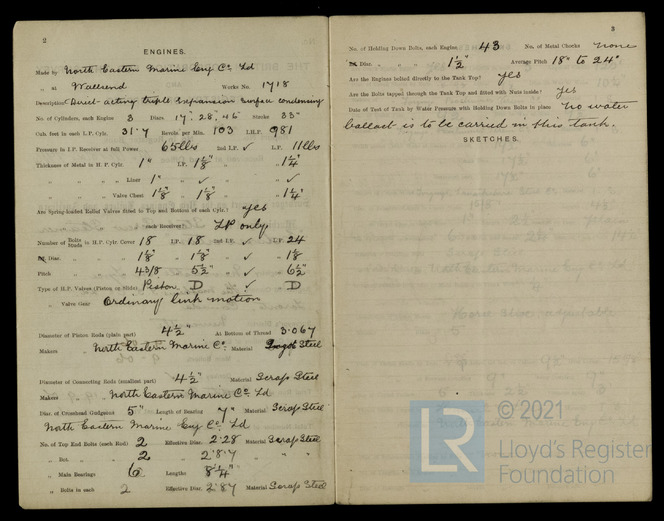 2
ENGINES.
Made by North Eastern Marine Eng Co Ld
" at Wallsend Works No. 1718
Description Direct-acting triple expansion surface condensing
No. of Cylinders, each Engine 3 Diars 17". 28. 46" Strokes 33"
Cub. feet in each L.P. Cylr. 31.7 Revols per Min. 103 I.H.P. 981
Pressure in I.P. Receiver at Full Power 65 lbs 2nd I.P. ✓ L.P. 11 lbs
Thickness of Metal in H.P. Cylr. 1" I.P. 1 1/8" " ✓ " 1 1/4"
" " " Liner 1" " ✓ " ✓
" " Valve Chest 1 1/8" " 1 1/8" " " 1 1/4"
Are Spring-loaded Relief Valves fitted to Top and Bottom of each Cylr.? yes
" " " " each Receiver? LP only
Number of Bolts Studs in H.P. Cylr. Cover 18 I.P. 18 2nd I.P. ✓ L.P. 24
Diar. " " 1 1/8" " 1 1/8" " ✓ " 1 1/8"
Pitch " " 4 3/8 " 5 1/2" " ✓ " 6 1/2"
Type of H.P. Valves (Piston or Slide) Piston D ✓ D
" Valve Gear Ordinary link motion
Diameter of Piston Rods (plain part) 4 1/2" At Bottom of Thread 3.067
Makers North Eastern Marine Co Material Steel
Diameter of Connecting Rods (smallest part) 4 1/2" Material Scrap Steel
Makers North Eastern Marine Co Ld
Diar. of Crosshead Gudgeons 5" Length of Bearing 7" Material Scrap Steel
North Eastern Marine Eng Co Ld
No. of Top End Bolts (each Rod) 2 Effective Diar. 2.28 Material Scrap Steel
" Bot. " " 2 " 2.87 " " "
" Main Bearings 6 Lengths 8 1/4"
" Bolts in each 2 Effective Diar. 2.87 Material Scrap Steel
3
No. of Holding Down Bolts, each Engine 43 No. of Metal Chocks none
Diar. " " " 1 1/2" Average Pitch 18" to 24"
Are the Engines bolted directly to the Tank Top? yes
Are the Bolts tapped through the Tank Top and fitted with Nuts inside? yes
Date of Test of Tank by Water Pressure with Holding Down Bolts in place No water
ballast is to be carried in this tank.
SKETCHES.
© 2021
LR
Lloyd's Register
Foundation